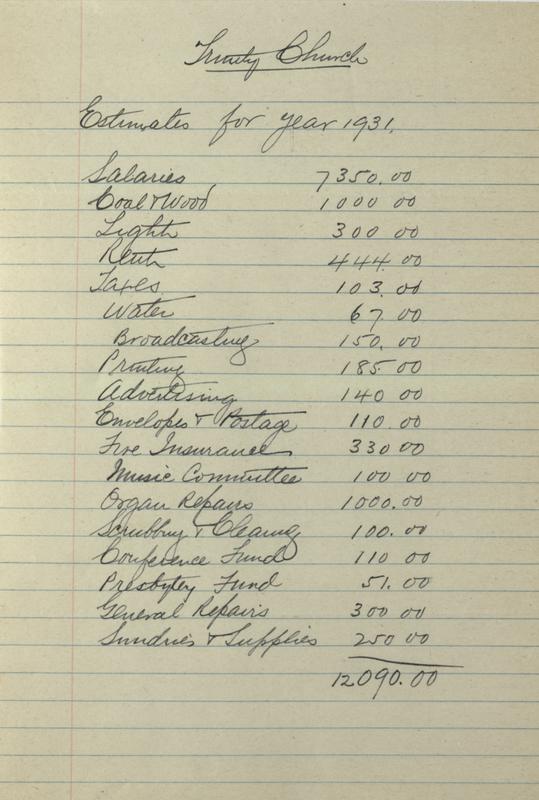 Trinity Church
Estimates for year 1931.
Salaries 7350.00
Coal & Wood 1000 00
Light 300 00
Rent 444.00
Taxes 103.00
Water 67.00
Broadcasting 150.00
Printing 185.00
Advertising 140 00
Envelopes & Postage 110.00
Fire Insurance 330 00
Music Committee 100 00
Organ Repairs 1000.00
Scrubbing & Cleaning 100.00
Conference Fund 110 00
Presbytery Fund 51.00
General Repairs 300 00
Sundries & Supplies 250 00
12090.00